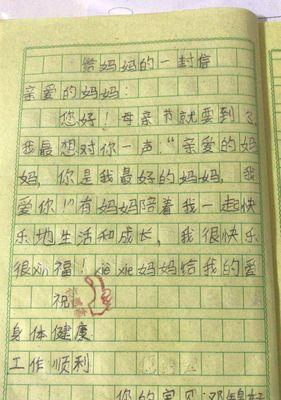 给妈妈的一封信
亲爱的妈妈：
您好！母亲节就要到了，
我最想对你一声："亲爱的妈
妈，你是我最好的妈妈，我
爱你！"有妈妈陪着我一起快
乐地生活和成长，我很快乐
很xin福！xiè xie妈妈给我的爱
祝
身体健康
工作顺利
你的宝贝：邓锦好